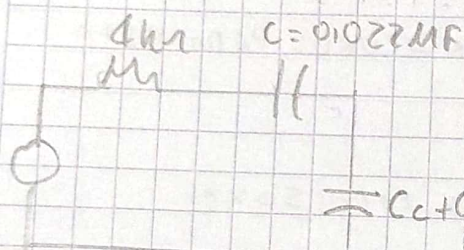 4kΩ C=0,022MF
Cc+C